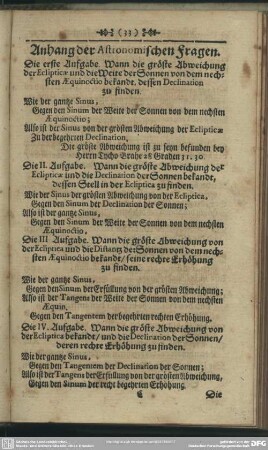 ·❧( 33 )☙·
Anhang der Astronomischen Fragen.
Die erste Aufgabe. Wann die gröste Abweichung
der Eclipticæ und die Weite der Sonnen von dem nech-
sten Æquinoctio bekandt, dessen Declination
zu finden.
Wie der gantze Sinus,
Gegen den Sinum der Weite der Sonnen von dem nechsten
Æquinoctio;
Also ist der Sinus von der grösten Abweichung der Eclipticæ
Zu der begehrten Declination,
Die gröste Abweichung ist zu seyn befunden bey
Herrn Tycho Brahe 28 Graden 31. 30.
Die II. Aufgabe. Wann die gröste Abweichung der
Ecliptica und die Declination der Sonnen bekandt,
dessen Stell in der Ecliptica zu finden.
Wie der Sinus der grösten Abweichung von der Ecliptica,
Gegen den Sinum der Declination der Sonnen;
Also ist der gantze Sinus,
Gegen den Sinum der Weite der Sonnen von dem nechsten
Æquinoctio,
Die III Aufgabe. Wann die gröste Abweichung von
der Ecliptica und die Distantz der Sonnen von dem nech-
sten Æquinoctio bekandt/ seine rechte Erhöhung
zu finden.
Wie der gantze Sinus,
Gegen den Sinum der Erfüllung von der grösten Abweichung;
Also ist der Tangens der Weite der Sonnen von dem nechsten
Æquin,
Gegen den Tangentem der begehrten rechten Erhöhung.
Die IV. Aufgabe. Wann die gröste Abweichung von
der Ecliptica bekandt/ und die Declination der Sonnen/
deren rechte Erhöhung zu finden.
Wie der gantze Sinus,
Gegen den Tangentem der Declination der Sonnen;
Also ist der Tangens der Erfüllung von der grösten Abweichung,
Gegen den Sinum der recht begehrten Erhöhung.
Die